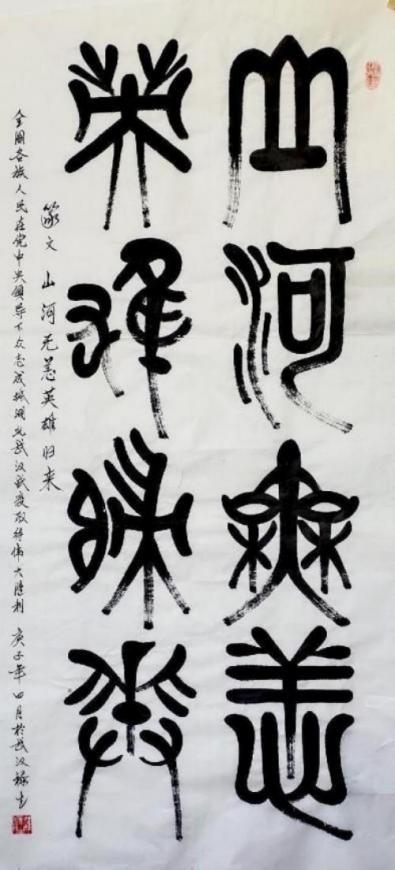 山河無恙
英雄歸來
篆文 山河无恙英雄归来
全国各族人民在党中央领导下众志成城湖北武汉战疫取得伟大胜利 庚子年四月於武汉